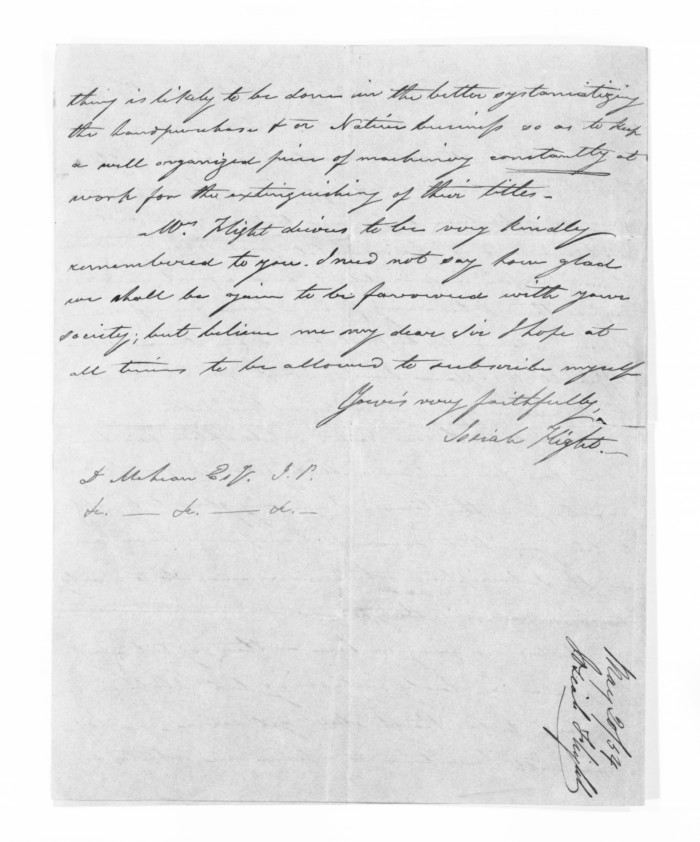 thing is likely to be done in the better systematizing
the land purchase & or Native business so as to keep
a well organized piece of machinery constantly at
work for the extinguishing of their titles –
Mrs. Flight desires to be very kindly
remembered to you. I need not say how glad
we shall be again to be favoured with your
society; but believe me my dear Sir I hope at
all times to be allowed to subscribe myself
Your's very faithfully,
Josiah Flight. –
D McLean Esqr. J. P.
&c. — &c. — &c. –
May 20/54
Josiah Flight